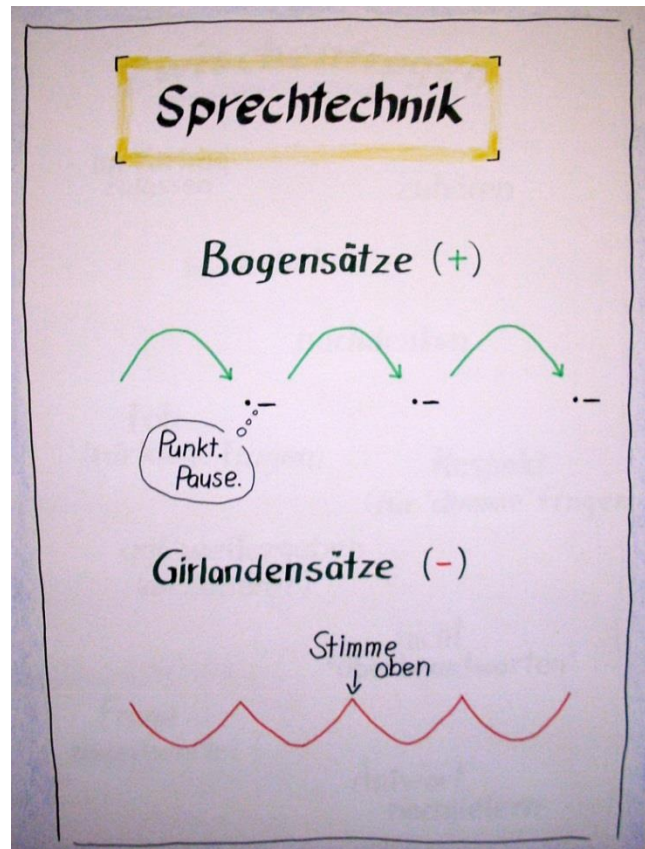 Sprechtechnik
Bogensätze (+)
Punkt.
Pause.
Girlandensätze (-)
Stimme
oben